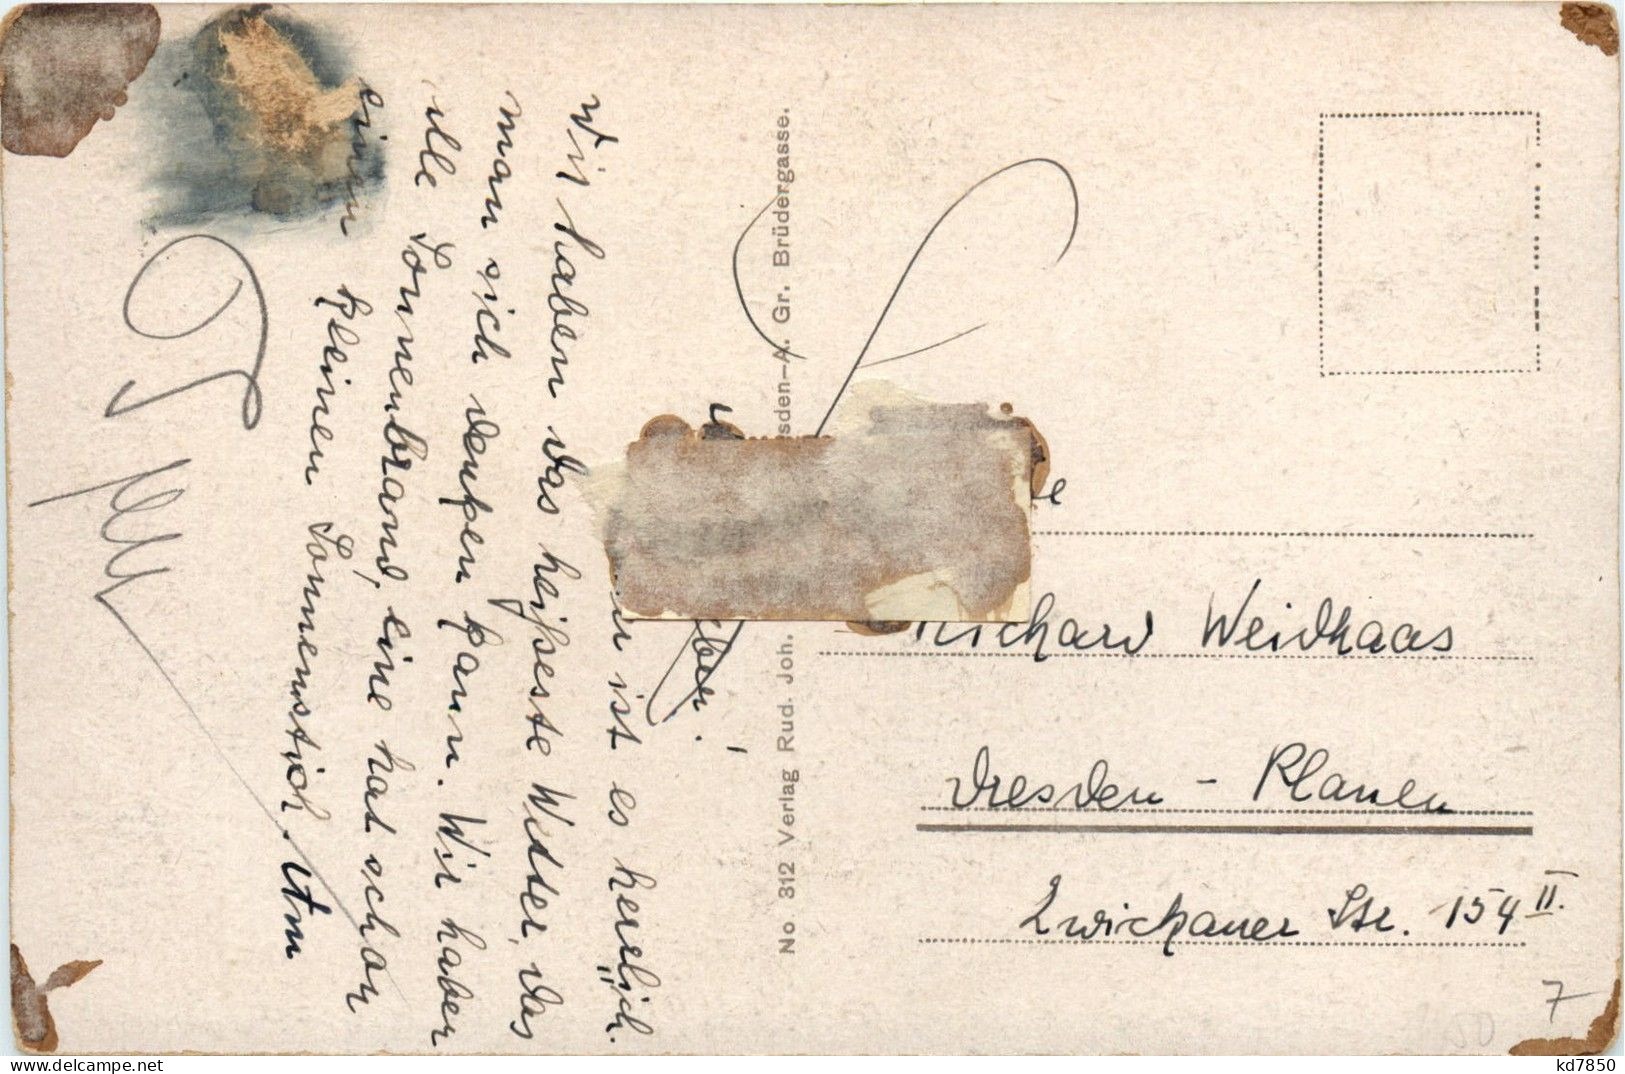 ist es herrlich.
Wir haben das heißeste Wetter, das
man sich denken kann. Wir haben
alle Sonnenbrand, eine hat schon
einen kleinen Sonnenstich. Am
No 312 Verlag Rud. Joh. sden-A. Gr. Brüdergasse.
Richard Weidhaas
Dresden - Plauen
Zwickauer Str. 154 II.
7
50
kd7850